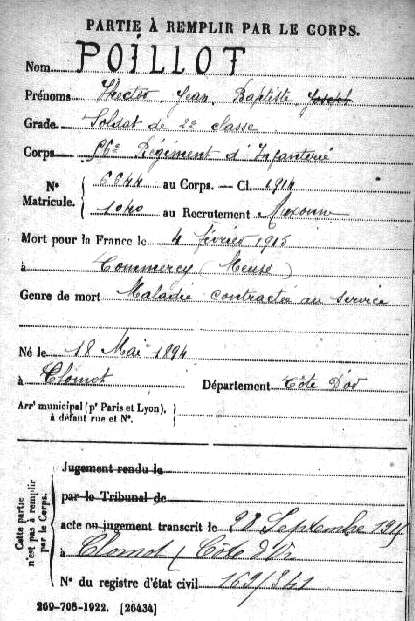 PARTIE À REMPLIR PAR LE CORPS.
Nom POILLOT
Prénoms Hector Jean Baptiste Joseph
Grade Soldat de 2e classe
Corps 56e Régiment d'Infanterie
N° Matricule. 6844 au Corps. — Cl. 1914
1040 au Recrutement Auxonne
Mort pour la France le 4 février 1915
à Commercy (Meuse)
Genre de mort Maladie contractée au service
Né le 18 Mai 1894
à Clomot Département Côte d'Or
Arrt municipal (pr Paris et Lyon),
à défaut rue et N°.
Cette partie n'est pas à remplir par le Corps.
Jugement rendu le
par le Tribunal de
acte ou jugement transcrit le 28 Septembre
à Clomot (Côte d'Or
N° du registre d'état civil 169/341
269-708-1922. [26434]